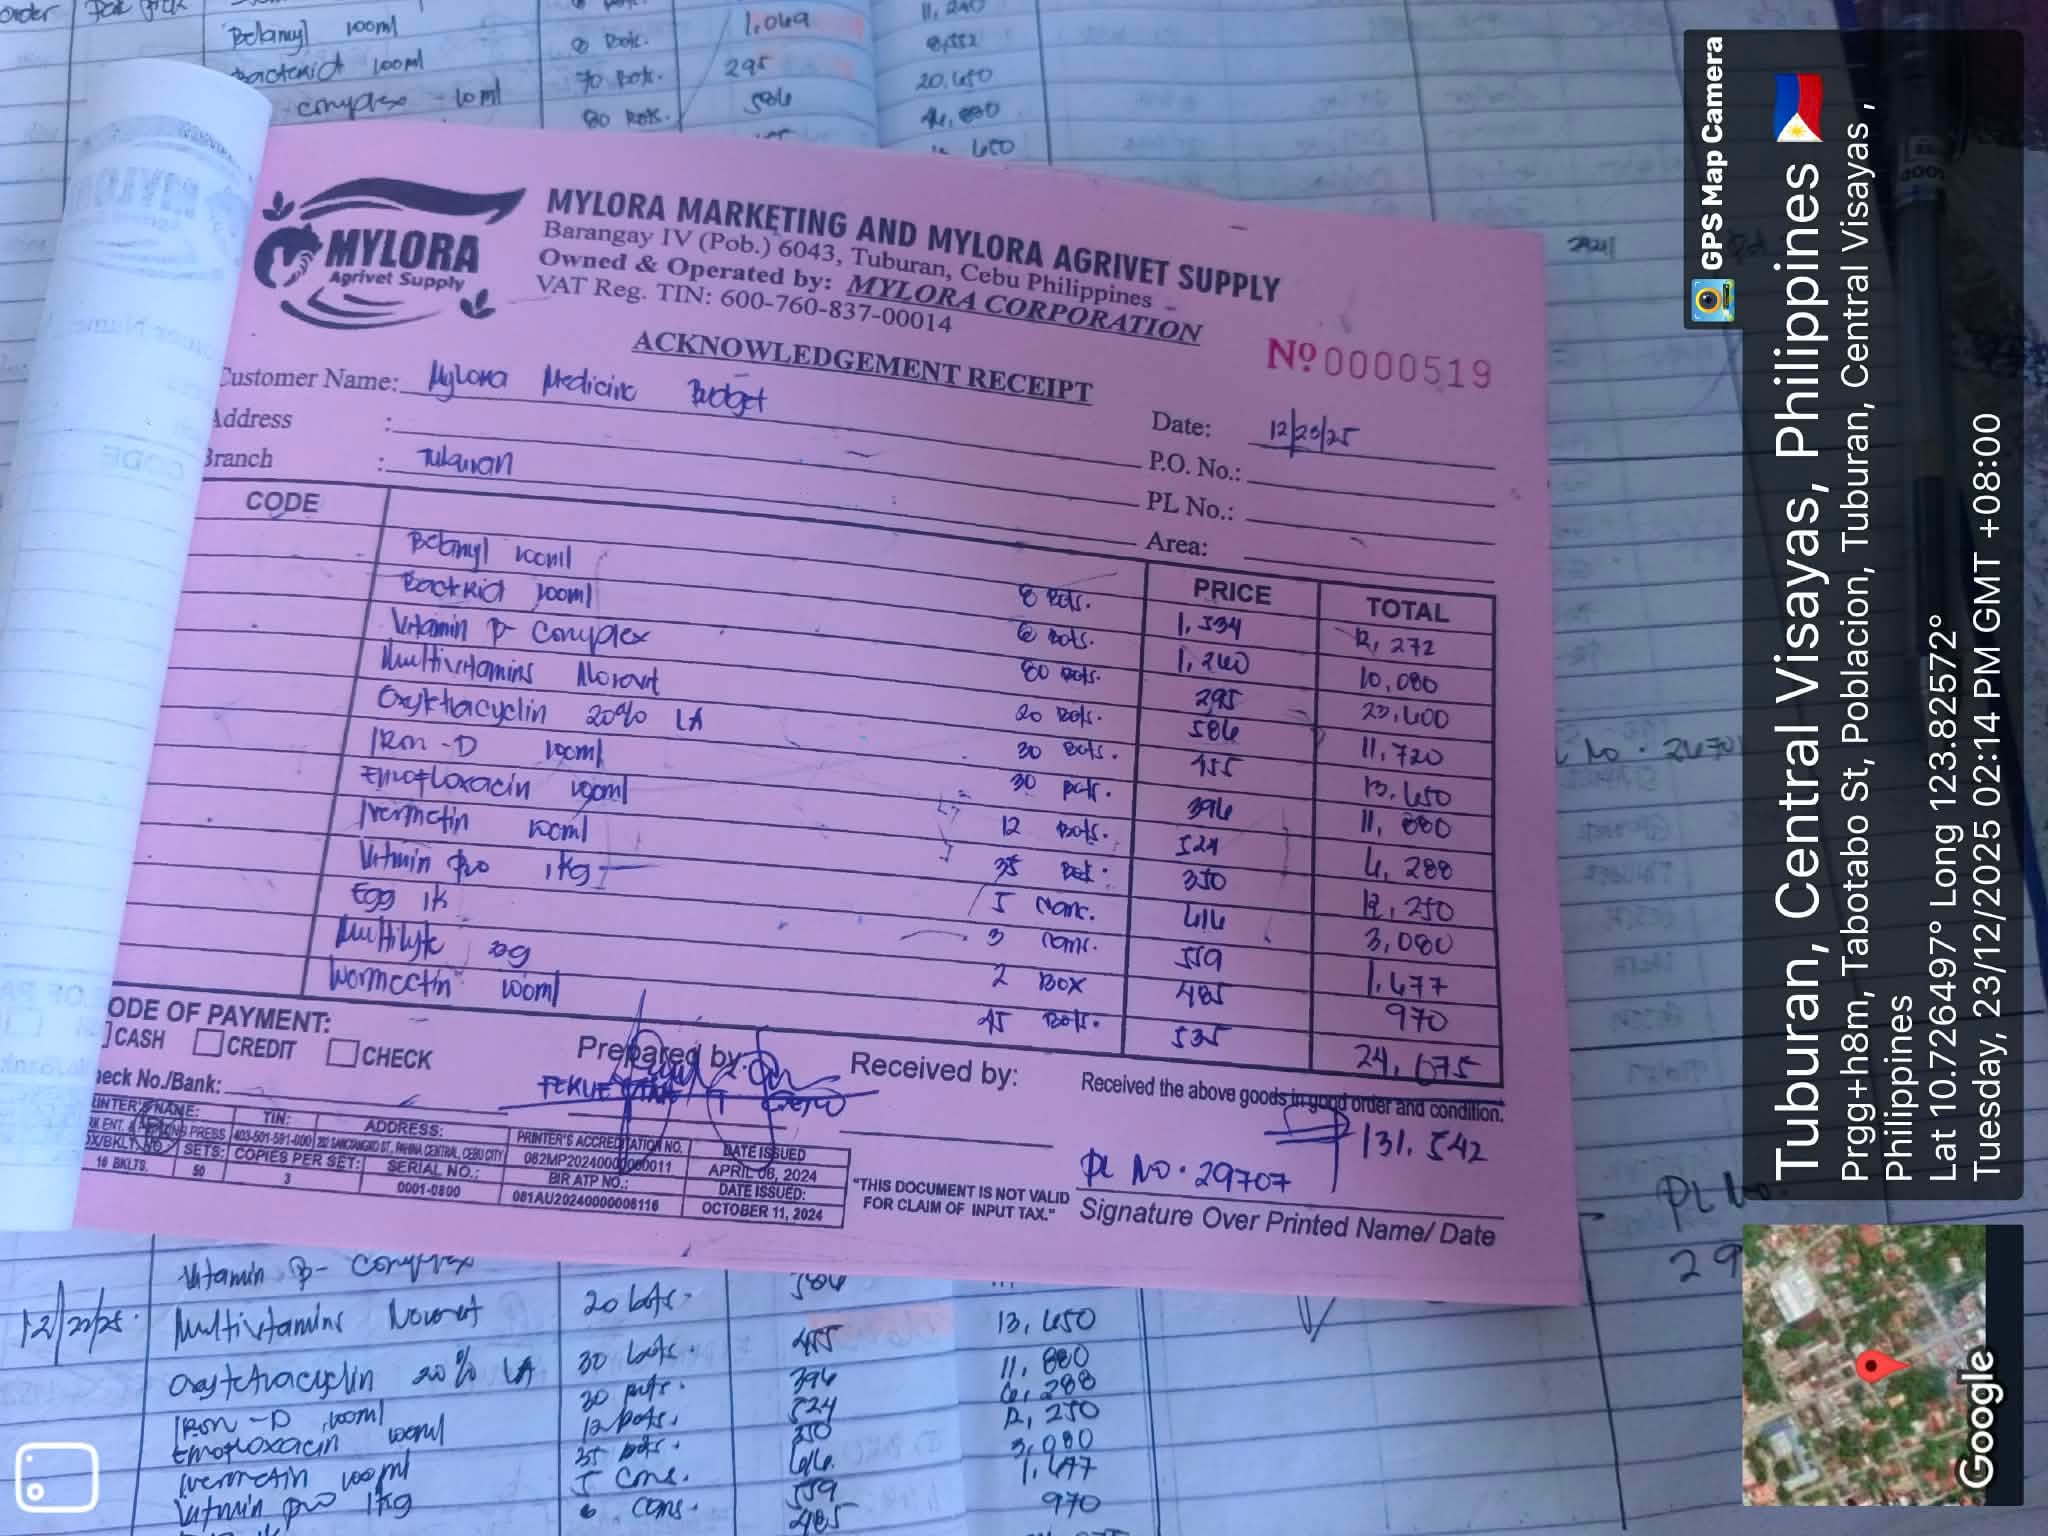 Belamyl 100ml 8 Bots. 1,069 8,552
Bacterid 100ml 70 Bots. 295 20,650
complex
80 Bots. 586
MYLORA
Agrivet Supply
MYLORA MARKETING AND MYLORA AGRIVET SUPPLY
Barangay IV (Pob.) 6043, Tuburan, Cebu Philippines
Owned & Operated by: MYLORA CORPORATION
VAT Reg. TIN: 600-760-837-00014
ACKNOWLEDGEMENT RECEIPT
Nº 0000519
Customer Name: Mylora Medicine Budget
Date: 12/23/25
Address :
P.O. No.:
Branch : Tuburan
PL No.:
Area:
CODE PRICE TOTAL
Belamyl 100ml 8 Bots. 1,534 12,272
Bactrid 100ml Bots. 1,260 10,080
Vitamin B-Complex 80 Bots. 295 23,600
Multivitamins Norovit 20 Bots. 586 11,720
Oxytetracyclin 20% LA 30 Bots. 455 13,650
Iron-D 100ml 30 Bots. 396 11,880
Enrofloxacin 100ml 12 Bots. 524 6,288
Ivermectin 100ml 35 Bot. 350 12,250
Vitmin Pro 1kg 5 Cans. 616 3,080
Egg 1k 3 Cans. 559 1,677
Multilyte 20g 2 Box 485 970
Wormectin 100ml 45 Bots. 535 24,075
ODE OF PAYMENT:
CASH CREDIT CHECK
eck No./Bank:
Prepared by:
Received by:
Received the above goods in good order and condition.
131,542
PL NO. 29707
Signature Over Printed Name/ Date
"THIS DOCUMENT IS NOT VALID
FOR CLAIM OF INPUT TAX."
RINTER'S NAME: TIN: ADDRESS: PRINTER'S ACCREDITATION NO. DATE ISSUED
403-501-591-000 082MP20240000000011 APRIL 08, 2024
SETS: COPIES PER SET: SERIAL NO.: BIR ATP NO.: DATE ISSUED:
16 BKLTS. 50 3 0001-0800 081AU20240000008116 OCTOBER 11, 2024
Vitamin B- Complex 586
12/22/25. Multivitamins Norovit 20 bots. 455 13,650
Oxytetracyclin 20% LA 30 bots. 396 11,880
Iron-D 100ml 30 bots. 524 6,288
Enrofloxacin 100ml 12 bots. 350 12,250
Ivermectin 100ml 35 bots. 616 3,080
Vitmin Pro 1kg 5 Cans. 559 1,677
Cans. 485 970
PL No.
29
GPS Map Camera
Tuburan, Central Visayas, Philippines 🇵🇭
Prgg+h8m, Tabotabo St, Poblacion, Tuburan, Central Visayas ,
Philippines
Lat 10.726497° Long 123.82572°
Tuesday, 23/12/2025 02:14 PM GMT +08:00
Google